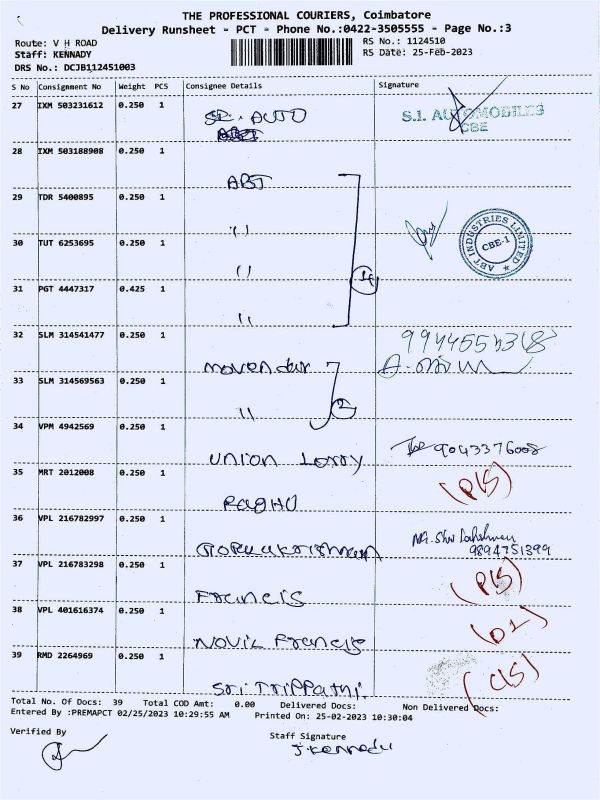 THE PROFESSIONAL COURIERS, Coimbatore
Delivery Runsheet - PCT - Phone No.:0422-3505555 - Page No.:3
Route: V H ROAD
RS No.: 1124510
Staff: KENNADY
RS Date: 25-Feb-2023
DRS No.: DCJB112451003
S No Consignment No Weight PCS Consignee Details Signature
27 IXM 503231612 0.250 1 S.I. AUTO S.I. AUTOMOBILES CBE
28 IXM 503188908 0.250 1 ABT
29 TDR 5400895 0.250 1 "
30 TUT 6253695 0.250 1 " ABT INDUSTRIES LIMITED CBE-1
31 PGT 4447317 0.425 1 "
32 SLM 314541477 0.250 1 movendur
33 SLM 314569563 0.250 1 " 2
34 VPM 4942569 0.250 1 union Lorry 9043376008
35 MRT 2012008 0.250 1 RAGHU
36 VPL 216782997 0.250 1 9894751399
37 VPL 216783298 0.250 1 Francis
38 VPL 401616374 0.250 1 Novil Francis
39 RMD 2264969 0.250 1
Total No. Of Docs: 39 Total COD Amt: 0.00 Delivered Docs: Non Delivered Docs:
Entered By :PREMAPCT 02/25/2023 10:29:55 AM Printed On: 25-02-2023 10:30:04
Verified By
Staff Signature
J. Kennadu